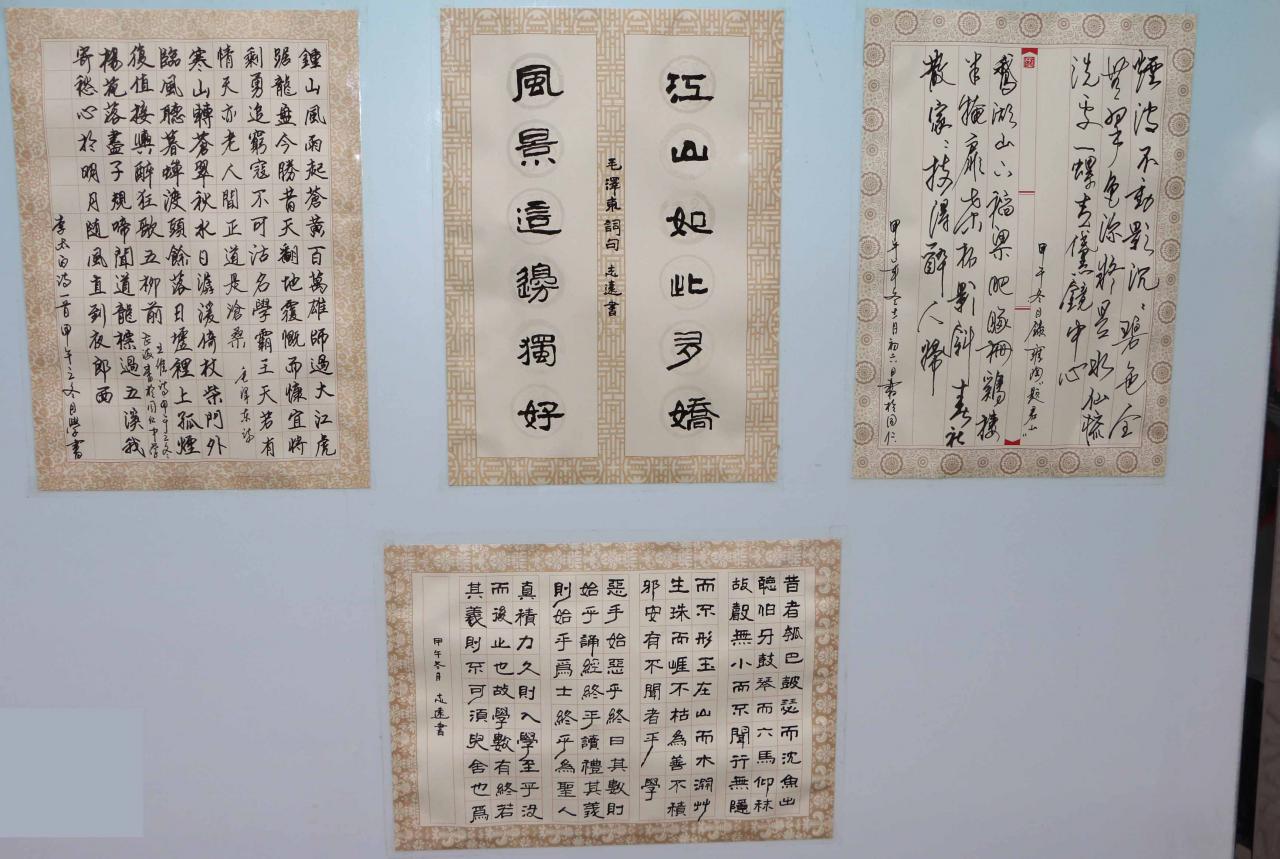 鍾山風雨起蒼黃百萬雄師過大江虎
踞龍盤今勝昔天翻地覆慨而慷宜將
剩勇追窮寇不可沽名學霸王天若有
情天亦老人間正道是滄桑 毛澤東詩
寒山轉蒼翠秋水日潺湲倚杖柴門外
臨風聽暮蟬渡頭餘落日墟裡上孤煙
復值接輿醉狂歌五柳前
王維詩甲午立冬
志遠書於同仁中學
楊花落盡子規啼聞道龍標過五溪我
寄愁心於明月隨風直到夜郎西
李太白詩一首甲午立冬月學書
江山如此多嬌
毛澤東詞句 志遠書
風景這邊獨好
煙波不動影沉〻碧色全
無翠色深疑是水仙梳
洗處一螺青黛鏡中心
甲午冬日錄雍陶題君山
鵝湖山下稻粱肥豚柵雞棲
半掩扉桑柘影斜春社
散家〻扶得醉人歸
甲午年冬十二月初六日書於同仁
昔者瓠巴鼓瑟而沈魚出
聽伯牙鼓琴而六馬仰秣
故聲無小而不聞行無隱
而不形玉在山而木潤艸
生珠而崖不枯為善不積
邪安有不聞者乎 學
惡乎始惡乎終曰其數則
始乎誦經終乎讀禮其義
則始乎為士終乎為聖人
真積力久則入學至乎沒
而後止也故學數有終若
其義則不可須臾舍也為
甲午冬月 志遠書